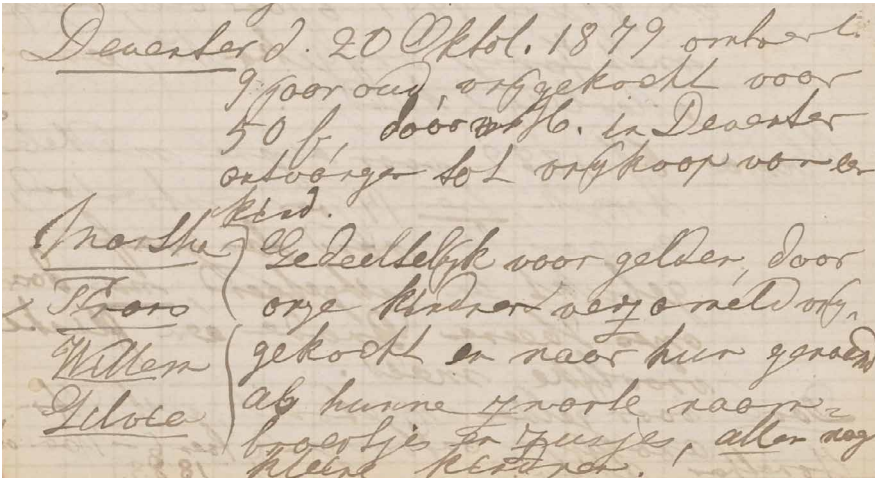 Deventer d. 20 Oktob. 1879 omtrent
9 jaar oud, vrijgekocht voor
50 f, door H. in Deventer
ontvangen tot vrijkoop van een
kind.
Martha Gedeeltelijk voor gelden, door
Frans onze kinderen verzameld vrij-
Willem gekocht en naar hun genoemd
Silvie als hunne zwarte naam=
broertjes en zusjes, allen nog
kleine kinderen.